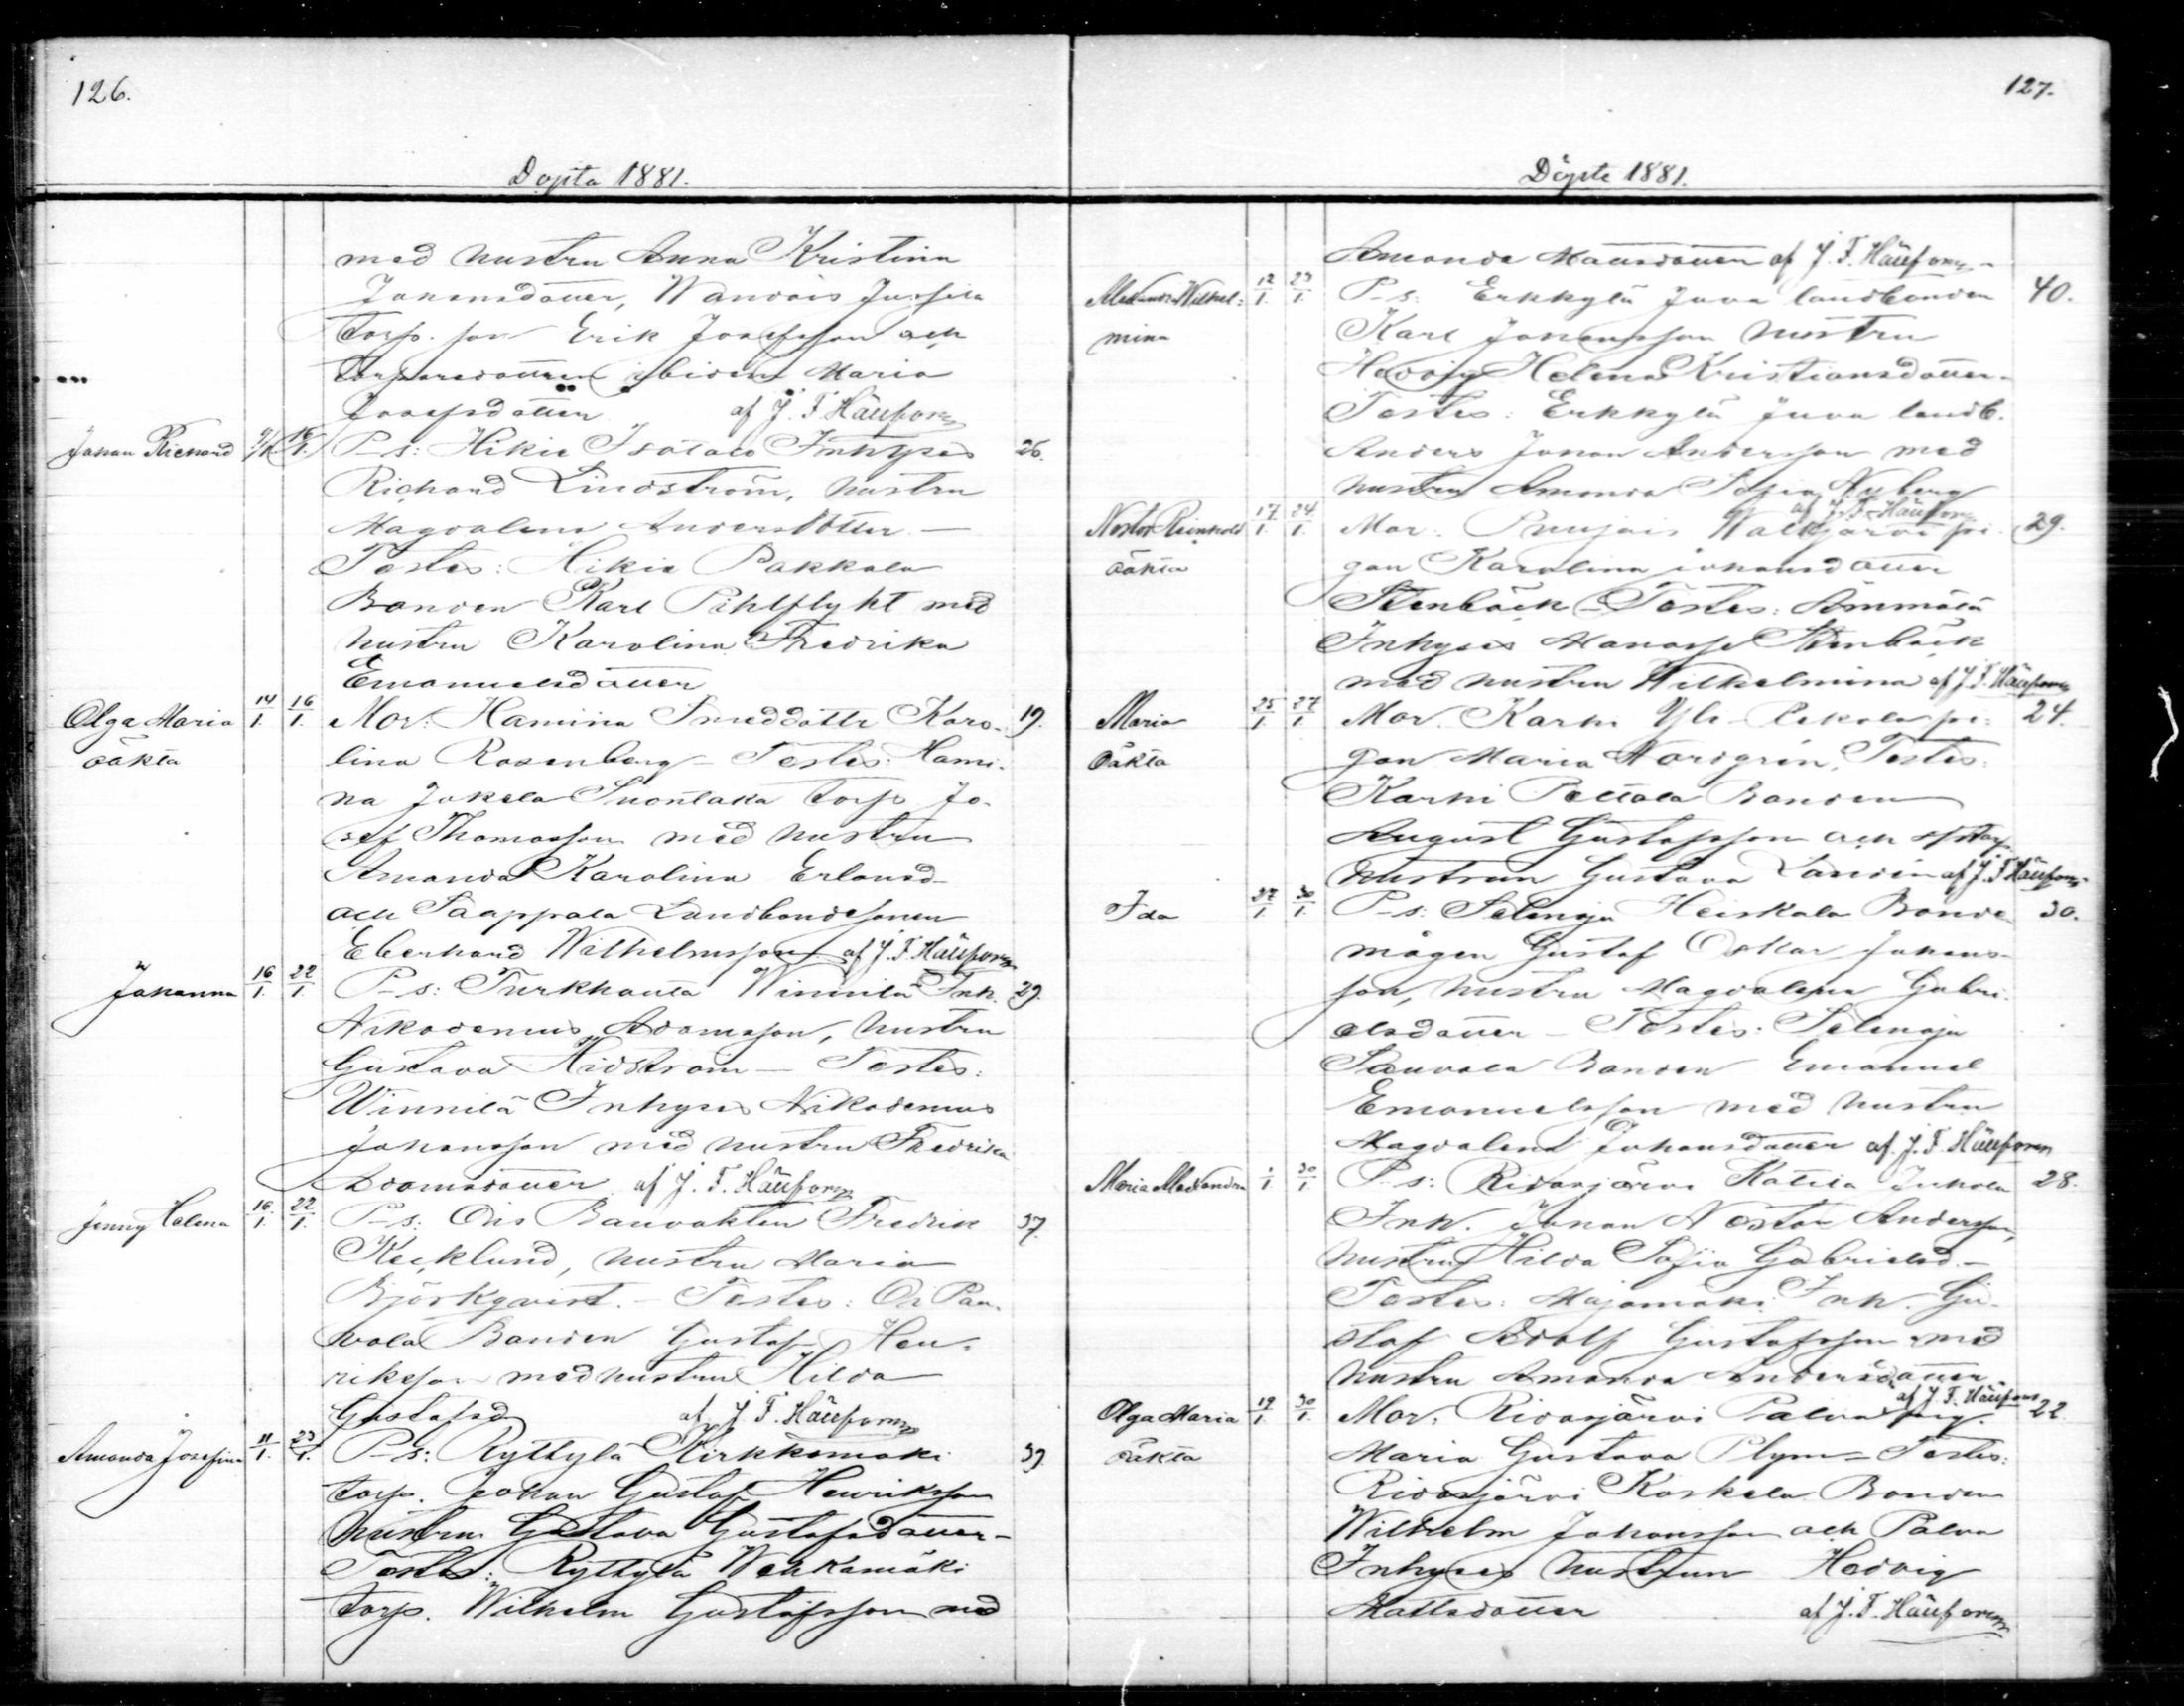 126.
Döpta 1881.
med hustru Anna Kristina
Johansdotter, Wandois Jussila
Torp. son Erik Josefsson och
Torparedottren ibidem Maria
Josefsdotter af J. F. Hällfors
Johan Richard 9/1. 16/1. P-s: Hikiä Isotalo Inhyses 26.
Richard Lindström, hustru
Magdalena Andersdotter –
Testes: Hikiä Pakkala
Bonden Karl Pihlflyht med
hustru Karolina Fredrika
Emanuelsdotter
Olga Maria 14/1. 16/1. Mor: Hamina Smeddottr Karo- 19.
oäkta lina Rosenberg – Testes: Hami-
na Jokela Torp. Jo-
sef Thomasson med hustru
Amanda Karolina Erlandsd
och Saappala Landbondesonen
Eberhard Wilhelmsson af J. F. Hällfors
Johanna 16/1. 22/1. P-s: Turkhauta Winnilä Inh. 29.
Nikodemus Adamsson, hustru
Gustava Hidström – Testes:
Winnilä Inhyses Nikodemus
Johansson med hustru Fredrika
Adamsdotter af J. F. Hällfors
Jenny Helena 16/1. 22/1. P-s: Ois Banvakten Fredrik 37.
Kecklund, hustru Maria
Björkqvist. – Testes: Oi Pau-
vola Bonden Gustaf Hen-
riksson med hustru Hilda
Gustafsd af J. F. Hällfors
Amanda Josefina 11/1. 23/1. P-s: Ryttylä Kirkkomäki 39.
Torp. Johan Gustaf Henriksson
hustru Gustava Gustafsdotter –
Testes: Ryttylä Wehkamäki
Torp. Wilhelm Gustafsson med
127.
Döpte 1881.
Amanda Mattsdotter af J. F. Hällfors –
Alexandra Wilhel- 12/1. 23/1. P-s: Erkkylä Juva landbonden 40.
mina Karl Johansson hustru
Hedvig Helena Kristiansdotter –
Testes: Erkkylä Juva landb.
Anders Johan Andersson med
hustru Amanda Sofia Nyberg
af J. F. Hällfors
Nestor Reinhold 17/1. 24/1. Mor: Puujais Walkjärvi pi- 29.
oäkta gan Karolina Johansdotter
Stenbäck – Testes: Ämmälä
Inhyses Manasse Stenbäck
med hustru Wilhelmina af J. F. Hällfors
Maria 25/1. 27/1. Mor. Karhi Yli- pi- 24.
oäkta gan Maria Nordgrén, Testes:
Karhi Pättälä Bonden
August Gustafsson och
hustrun Gustava Landén af J. F. Hällfors
Ida 27/1. 30/1. P-s: Selänoja Heiskala Bonde 30.
mågen Gustaf Oskar Johans-
son, hustru Magdalena Gabri-
elsdotter – Testes: Selänoja
Sauvala Bonden Emanuel
Emanuelsson med hustru
Magdalena Johansdotter af J. F. Hällfors
Maria Alexandra 30/1. P-s: Ridasjärvi Juhola 28.
Inh. Johan Nestor Andersson,
hustru Hilda Sofia Gabrielsd. –
Testes: Majamäki Inh. Gu-
staf Adolf Gustafsson med
hustru Amanda Andersdotter
af J. F. Hällfors
Olga Maria 19/1. 30/1. Mor. Ridasjärvi Palva pig. 22.
oäkta Maria Gustava Plym – Testes:
Ridasjärvi Koskela Bonden
Wilhelm Johansson och Palva
Inhyses hustrun Hedvig
Mattsdotter af J. F. Hällfors